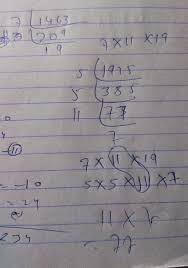 7 | 1463
209
19
7 × 11 × 19
5 | 1925
5 | 385
11 | 77
7
7 × 11 × 19
5 × 5 × 11 × 7
= -10
= 24
11 × 7
= 77
234